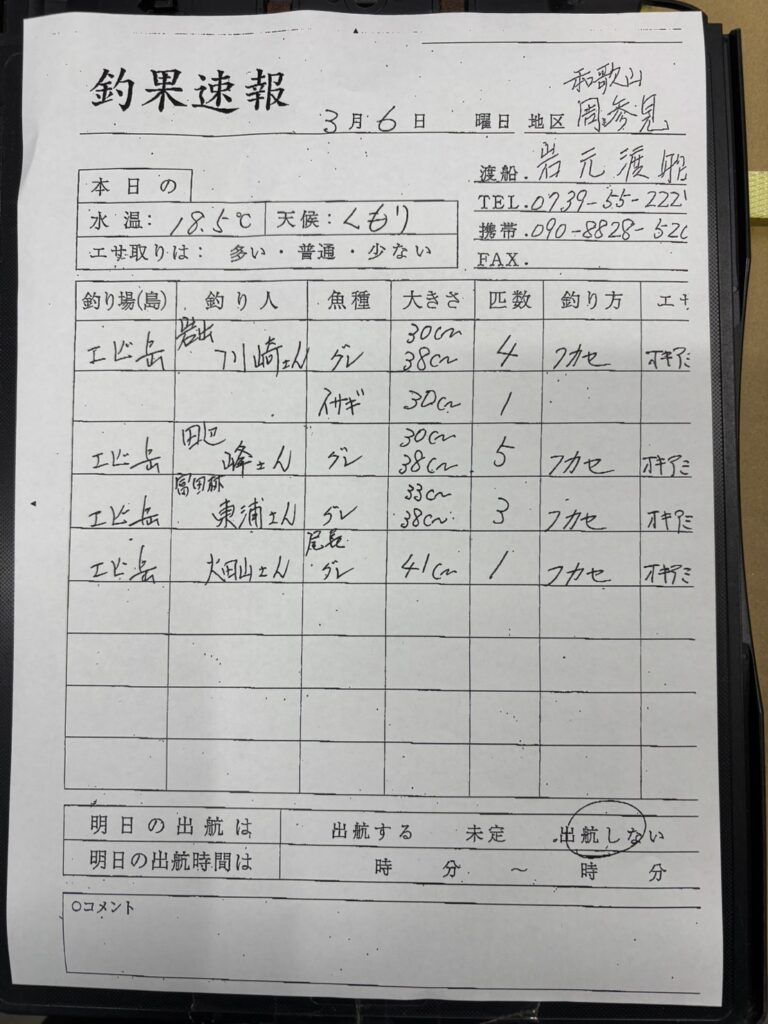 釣果速報
3月6日 曜日 地区 和歌山 周参見
渡船. 岩元渡船
本日の
水温: 18.5℃ 天候: くもり
TEL. 0739-55-222
携帯. 090-8828-520
エサ取りは: 多い・普通・少ない
FAX.
釣り場(島) 釣り人 魚種 大きさ 匹数 釣り方 エサ
エビ岳 岩出 川崎さん グレ 30㎝〜38㎝ 4 フカセ オキアミ
イサギ 30㎝ 1
エビ岳 田辺 峰さん グレ 30㎝〜38㎝ 5 フカセ オキアミ
エビ岳 富田林 東浦さん グレ 33㎝〜38㎝ 3 フカセ オキアミ
エビ岳 犬田山さん 尾長グレ 41㎝ 1 フカセ オキアミ
明日の出航は 出航する 未定 出航しない
明日の出航時間は 時 分 〜 時 分
○コメント